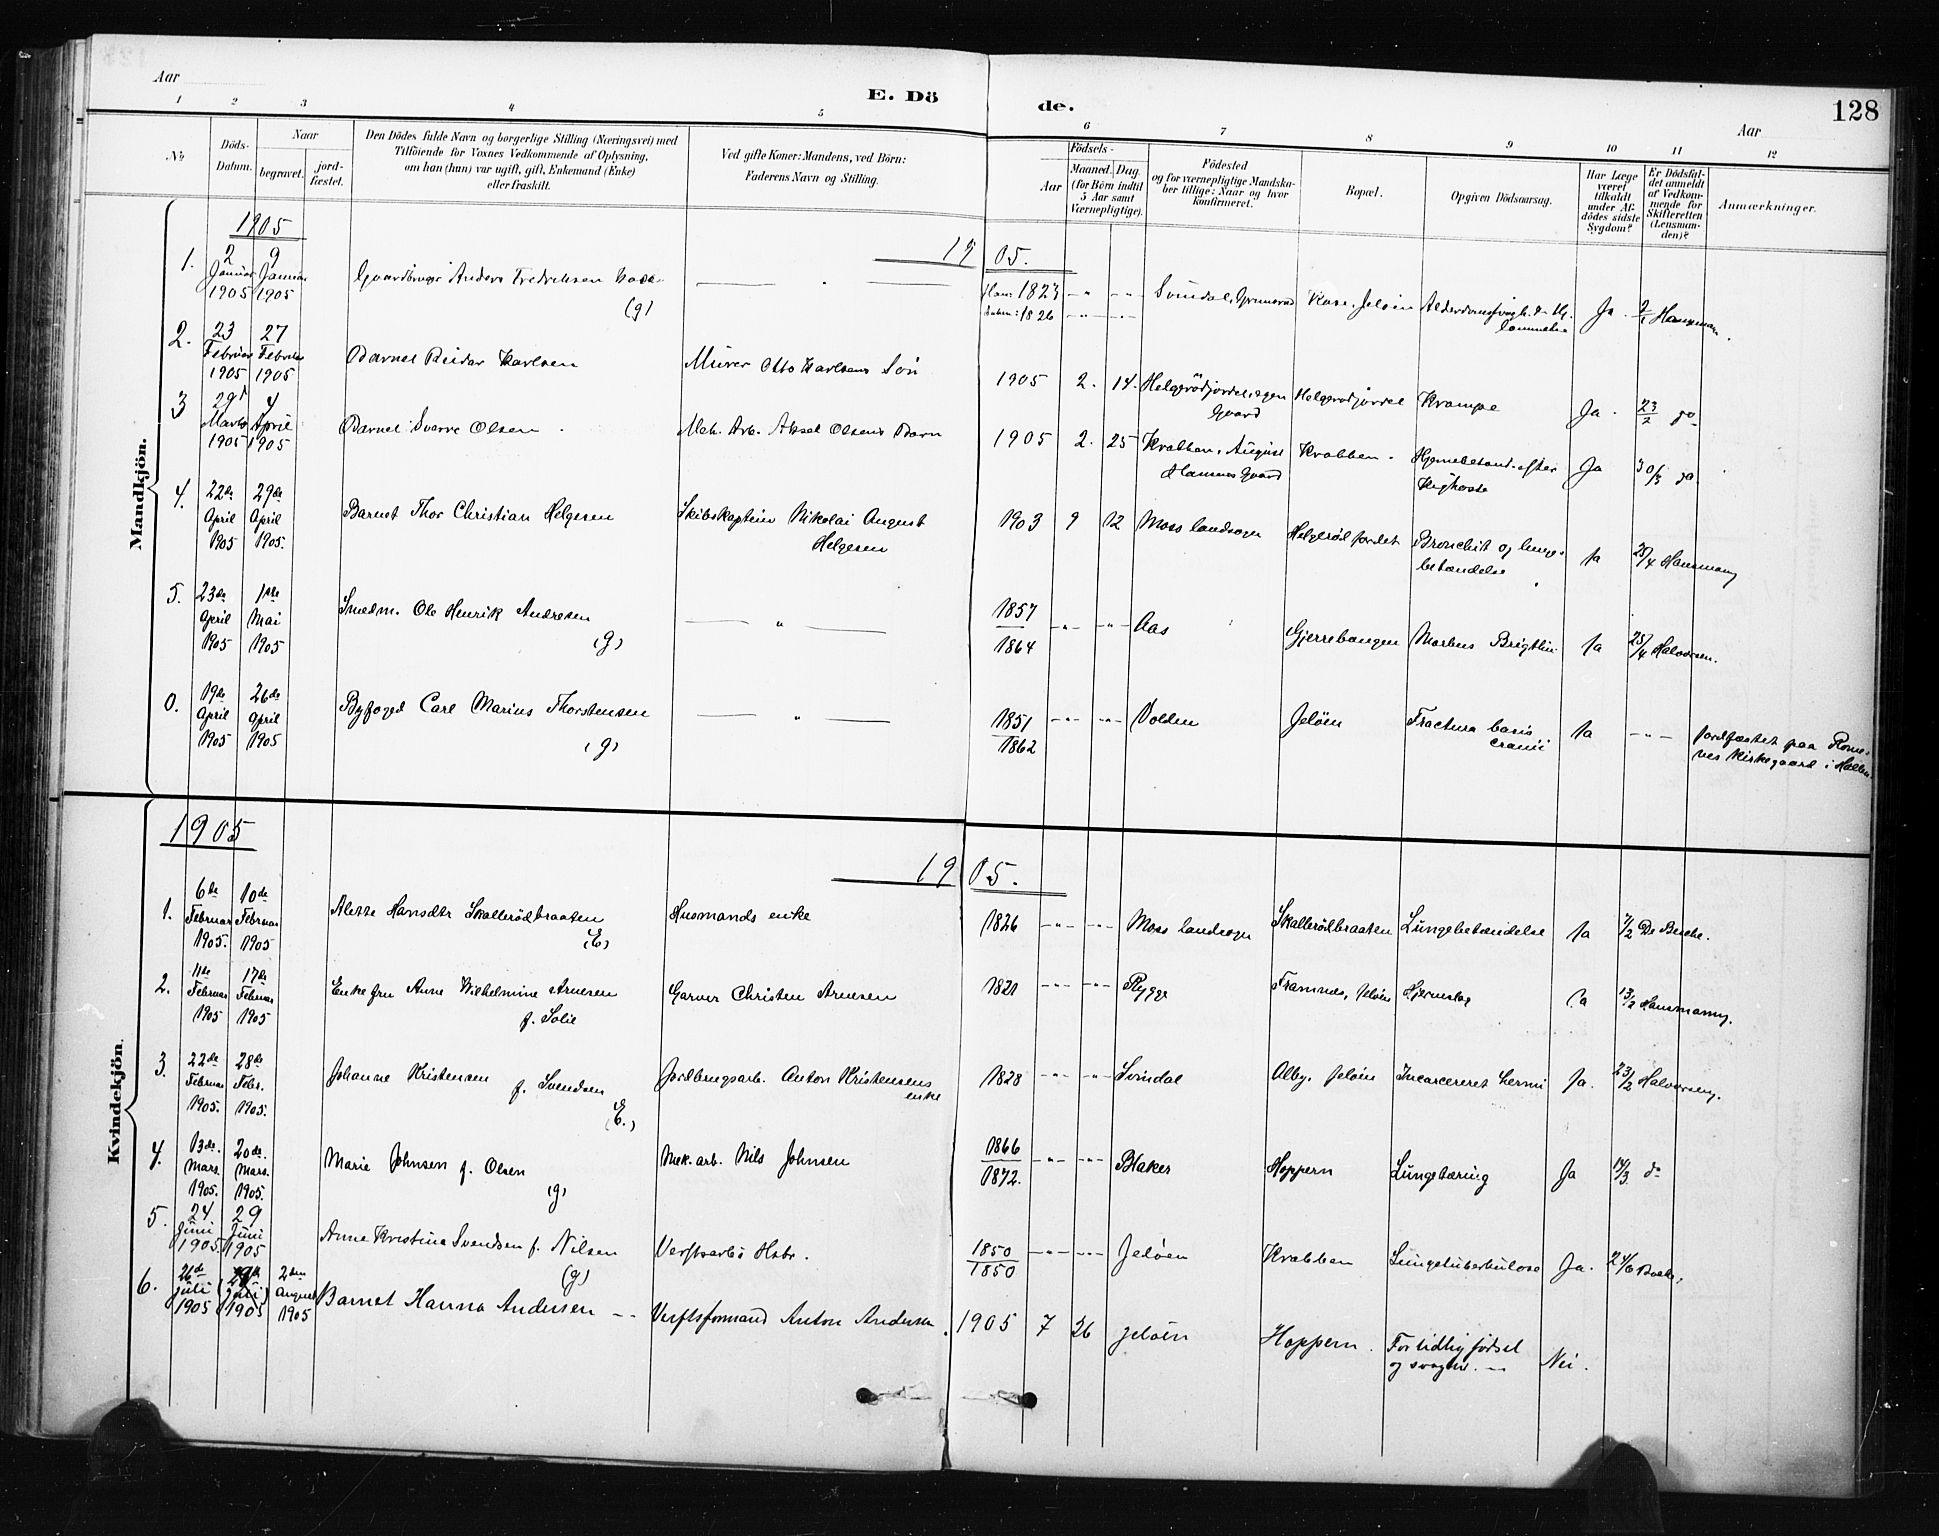 Aar
E. Dö
de.
Aar
128
1 2 3 4 5 6 7 8 9 10 11 12
No
Döds-Datum.
Naar
begravet.
jord-fæstet.
Den Dödes fulde Navn og borgerlige Stilling (Næringsvei) med
Tilföiende for Voxnes Vedkommende af Oplysning,
om han (hun) var ugift, gift, Enkemand (Enke)
eller fraskilt.
Ved gifte Koner: Mandens, ved Börn:
Faderens Navn og Stilling.
Födsels-
Aar
Maaned. Dag
(for Börn indtil
5 Aar samt
Værnepligtige).
Födested
og for værnepligtige Mandska-
ber tillige: Naar og hvor
konfirmeret.
Bopæl.
Opgiven Dödsaarsag.
Har Læge
været
tilkaldt
under Af-
dödes sidste
Sygdom?
Er Dödsfal-
det anmeldt
af Vedkom-
mende for
Skifteretten
(Lensman-
den)?
Anmærkninger.
Mandkjön.
1905
1905.
1. 2 Januar 1905 9 Januar 1905 Gaardbruger Anders Fredriksen Kase (g) 1823 1826 Svindal, Kase, Jeløen Ja 2/1 Hansman
2. 23 Februar 1905 27 Februar 1905 Barnet Reidar Karlsen Murer Otto Karlsens Søn 1905 2. 14. Helgerödjordet, egen Gaard Helgerödjordet Krampe Ja. 23/2 do
3 29d Marts 1905 4 April 1905 Barnet Sverre Olsen Mek. Arb. Aksel Olsens Barn 1905 2. 25 Krabben, August Hansens Gaard Krabben. Hjernebetænd. efter Kighoste Ja 30/3 do
4. 22de April 1905 29de April 1905. Barnet Thor Christian Helgesen Skibskaptein Nikolai August Helgesen 1903 9 12 Moss landsogn Helgerød jordet Bronchit og lunge-betændelse Ja 25/4 Hansmann
5. 23de April 1905 1ste Mai 1905 Smedm. Ole Henrik Andresen (g) 1857 1864 Aas Gjerrebangen Morbus Brigthii Ja 25/4 Halvorsen.
19de April 1905 26de April 1905 Byfoged Carl Marius Thorstensen (g) 1851 1862 Volden Jeløen Fractura basis cranii Ja jordfæstet paa kirkegaard i
Kvindekjön.
1905
1905.
1. 6de Februar 1905. 10de Februar 1905 Alette Hansdtr Skallerødbraaten (E) Husmands enke 1826 Moss landsogn Skallerødbraaten Lungebetændelse Ja 7/2 De Besche.
2. 11de Februar 1905 17de Februar 1905 Enkefru Anne Wilhelmine Arnesen f. Solie Garver Christen Arnesen 1821 Rygge Framnes, Jeløen Hjerneslag Ja 13/2 Hansmann.
3. 22de Februar 1905. 28de Febr. 1905. Johanne Kristensen f. Svendsen (E.) Jordbrugsarb. Anton Kristensens enke 1828 Svindal Alby, Jeløen Incarcereret herni Ja. 23/2 Halvorsen.
4. 13de. Mars. 1905. 20de. Mars. 1905. Marie Johnsen f. Olsen (g) Mek. arb. Nils Johnsen 1866 1872. Blaker Hoppern Lungetæring Ja 14/3. do
5. 24 Juni 1905 29 Juni 1905 Anne Kristina Svendsen f. Nilsen (g) Verftsarb's Hstr. 1850 1850 Jeløen Krabben Lungetuberkulose Ja. 24/6
6. 26de juli 1905 juli 1905 2den August 1905 Barnet Hanna Andersen Verftsformand Anton Andersen 1905 7 26 Jeløen Hoppern. For tidlig fødsel og svaghed. Nei.